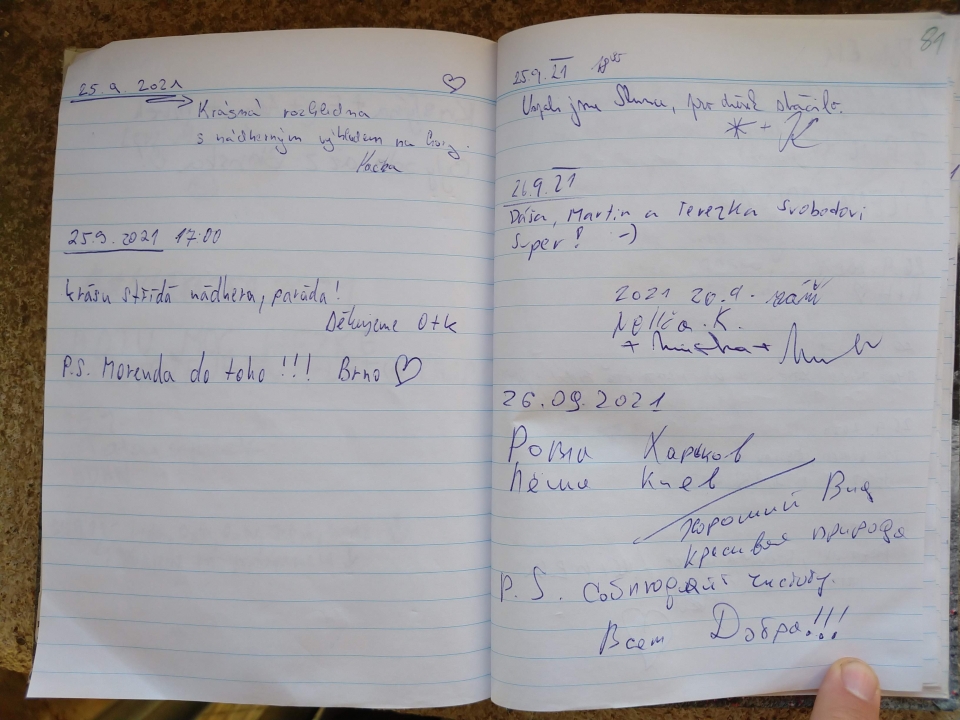 25.9 2021
Krásná rozhledna
s nádherným výhledem na hory.
Kačka
25.9.2021 17:00
krásu střídá nádhera, paráda!
Děkujeme O+K
P.S. Morenda do toho!!! Brno
81
25.9.21
jsme Slunce, pro dnešek stačilo.
+ K
26.9.21
Dáša, Martin a Terezka Svobodovi
super! :-)
2021 20.9. září
K.
+ +
26.09.2021
Рома Харьков
Лёша Киев
хороший Вид
красивая природа
P.S. Соблюдайте чистоту.
Всем Добра!!!